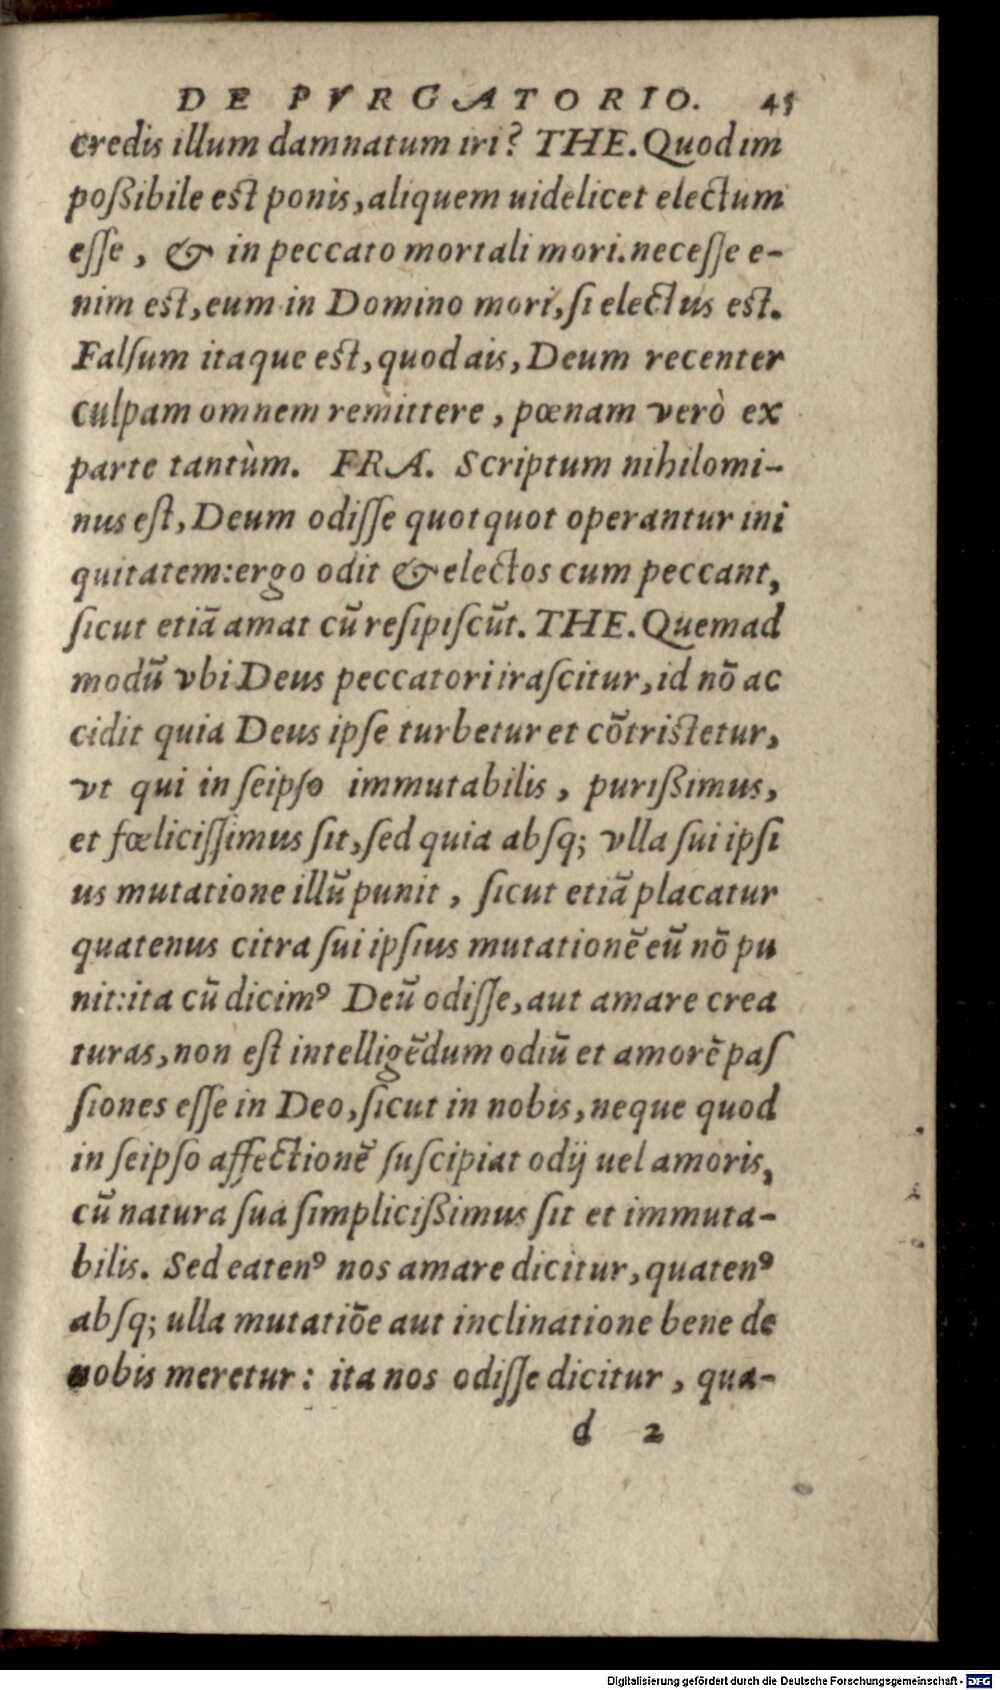 DE PVRGATORIO. 45
credis illum damnatum iri? THE. Quod im
poßibile est ponis, aliquem uidelicet electum
eſſe, & in peccato mortali mori. neceſſe e-
nim est, eum in Domino mori, ſi electus est.
Falſum itaque est, quod ais, Deum recenter
culpam omnem remittere, pœnam verò ex
parte tantùm. FRA. Scriptum nihilomi-
nus eſt, Deum odiſſe quotquot operantur ini
quitatem: ergo odit & electos cum peccant,
ſicut etiā amat cū reſipiſcūt. THE. Quemad
modū vbi Deus peccatori iraſcitur, id nō ac
cidit quia Deus ipſe turbetur et cōtristetur,
vt qui in ſeipſo immutabilis, purißimus,
et fœliciſſimus ſit, ſed quia abſq; vlla ſui ipſi
us mutatione illū punit, ſicut etiā placatur
quatenus citra ſui ipſius mutationē eū nō pu
nit: ita cū dicimꝰ Deū odiſſe, aut amare crea
turas, non eſt intelligēdum odiū et amorē paſ
ſiones eſſe in Deo, ſicut in nobis, neque quod
in ſeipſo affectionē ſuſcipiat odij uel amoris,
cū natura ſua ſimplicißimus ſit et immuta-
bilis. Sed eatenꝰ nos amare dicitur, quatenꝰ
abſq; ulla mutatiōe aut inclinatione bene de
nobis meretur: ita nos odiſſe dicitur, qua-
d 2
Digitalisierung gefördert durch die Deutsche Forschungsgemeinschaft - DFG